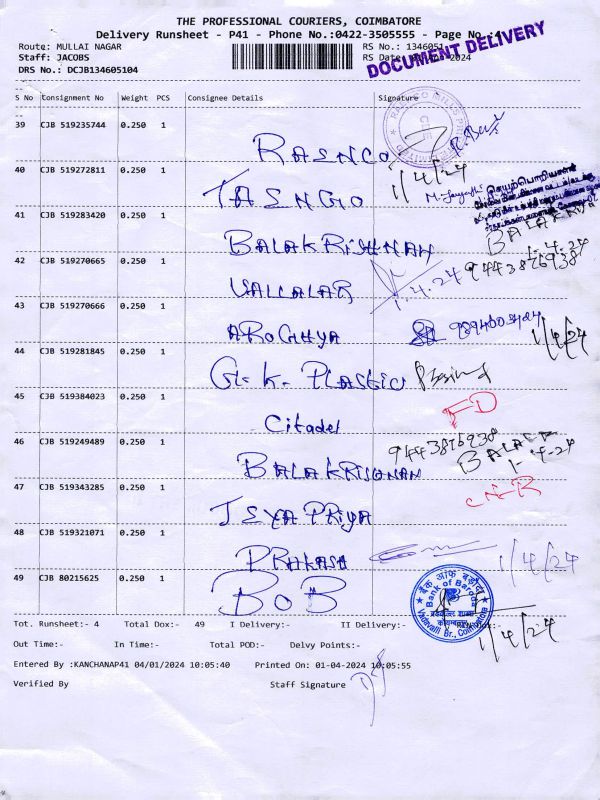 THE PROFESSIONAL COURIERS, COIMBATORE
Delivery Runsheet - P41 - Phone No.:0422-3505555 - Page No.:4
Route: MULLAI NAGAR RS No.: 1346051
Staff: JACOBS RS Date 2024
DRS No.: DCJB134605104
DOCUMENT DELIVERY
S No Consignment No Weight PCS Consignee Details Signature
39 CJB 519235744 0.250 1
RAENCO
1/4/24
40 CJB 519272811 0.250 1
TAENGO
41 CJB 519283420 0.250 1
BALAKRISHNAN
1-4-24
9443876938
42 CJB 519270665 0.250 1
VALLALAR
1.4.24
43 CJB 519270666 0.250 1
AROGHYA
1/4/24
44 CJB 519281845 0.250 1
G.K. PLASTIC
45 CJB 519384023 0.250 1
Citadel
FD
46 CJB 519249489 0.250 1
BALAKRISHNAN
9443876938
1-4-24
47 CJB 519343285 0.250 1
JEYA PRIYA
CNR
48 CJB 519321071 0.250 1
PRAKASH
1/4/24
49 CJB 80215625 0.250 1
BOB
बैंक ऑफ़ बड़ौदा
Bank of Baroda
Vadavalli Br., Coimbatore
1/4/24
Tot. Runsheet:- 4 Total Dox:- 49 I Delivery:- II Delivery:-
Out Time:- In Time:- Total POD:- Delvy Points:-
Entered By :KANCHANAP41 04/01/2024 10:05:40 Printed On: 01-04-2024 10:05:55
Verified By Staff Signature